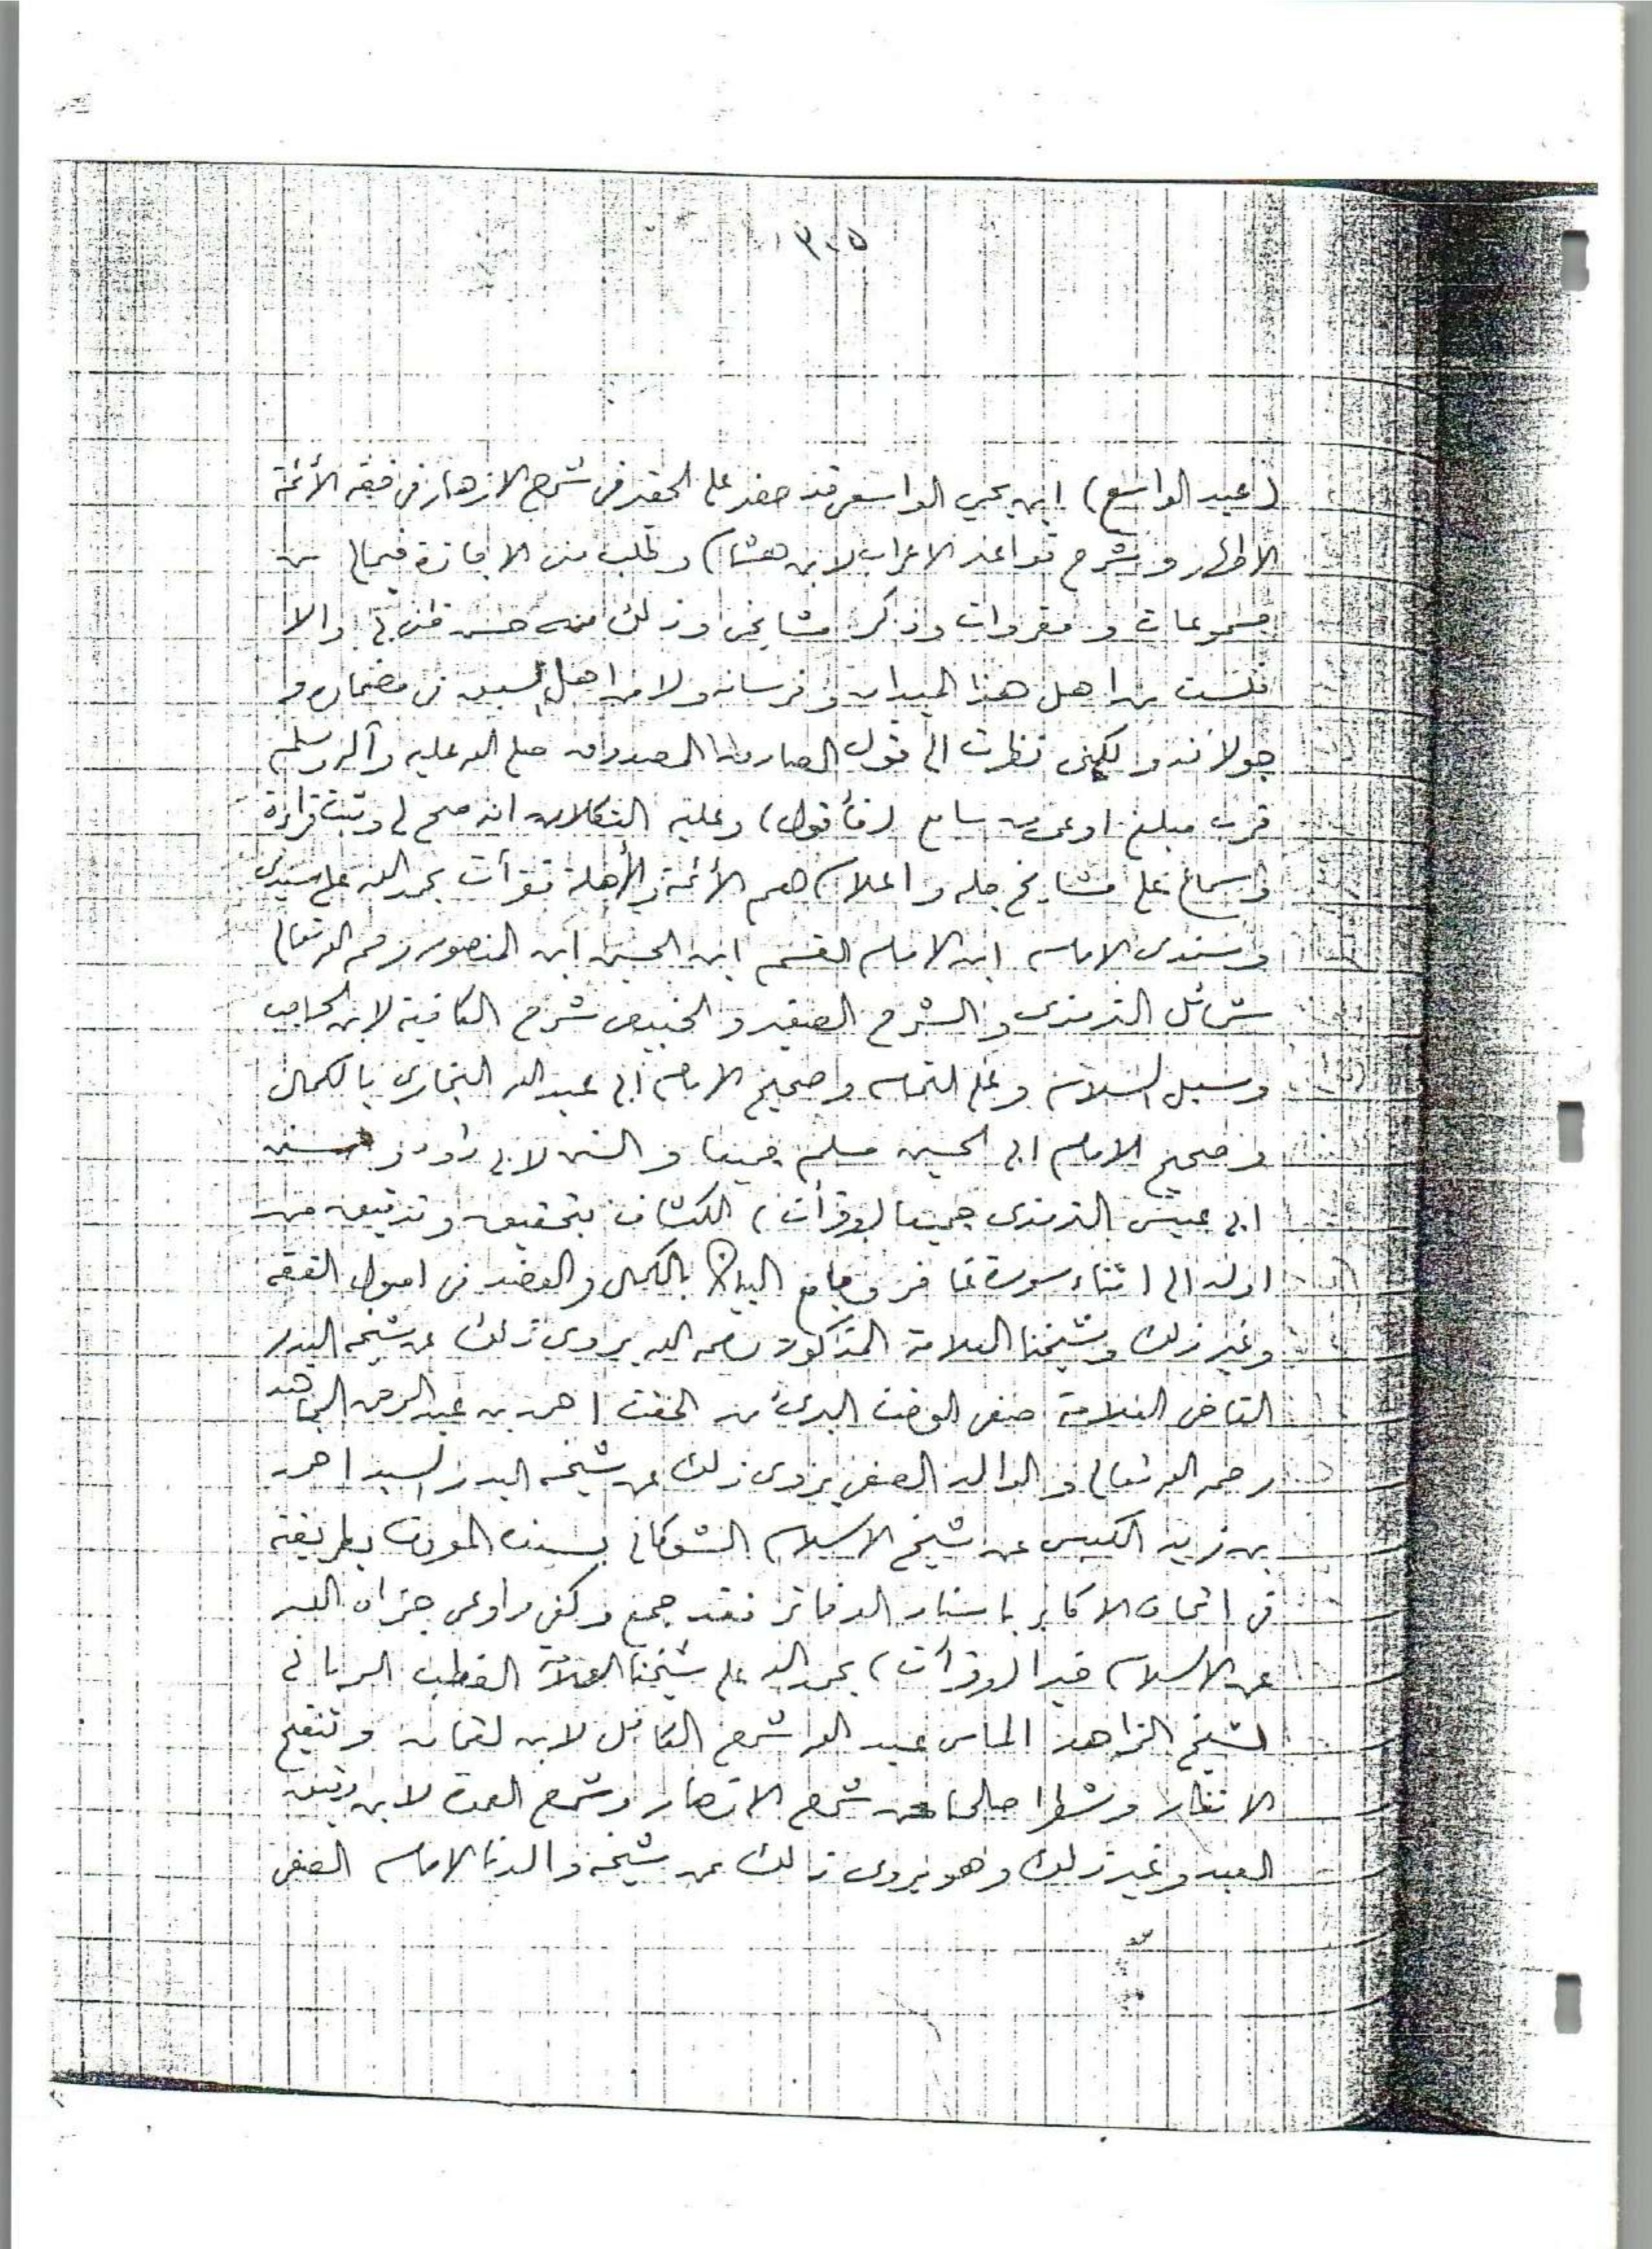 ٣٠٥
(عبد الواسع) ابن يحيى الواسعي قد حضر على الحقير في شرح الازهار في فقه الأئمة
الاطهار وشرح قواعد الاعراب لابن هشام وطلب مني الاجازة فيما لي من
مسموعات ومقروات وذكر مشايخي وذلك منه حسن ظن بي والا
فلست من اهل هذا الميدان وفرسانه ولا من اهل السبق في مضماره و
جولانه ولكني نظرت الى قول الصادق المصدوق صلى الله عليه وآله وسلم
فرب مبلغ اوعى من سامع (فأقول) وعليه التكلان انه صح لي وثبت قراءة
وسماع على مشايخ جله واعلام هم الأئمة والأهلة قرأت بحمد الله على سيدي
وسندي الامام ابن الامام القسم ابن الحسين ابن المنصور رحمه الله تعالى
شمائل الترمذي والشرح الصغير والخبيصي شرح الكافية لابن الحاجب
وسبل السلام وعلى التمام وصحيح الامام أبي عبد الله البخاري بالكمال
وصحيح الامام ابي الحسين مسلم جميعا والسنن لابي داود وسنن
ابي عيسى الترمذي جميعا (وقرأت) الكشاف بتحقيق وتدقيق من
اوله الى اثناء سورة غافر وجامع البيان بالكمال والعضد في اصول الفقه
وغير ذلك وشيخنا العلامة المذكور رحمه الله يروي ذلك عن شيخه البدر
القاضي العلامة صفي الوقت البدري احمد بن عبد الرحمن المجاهد
رحمه الله تعالى والوالد الصفي يروي ذلك عن شيخه البدر السيد احمد
بن زيد الكبسي عن شيخ الاسلام الشوكاني بسنده المعروف بطريقه
في اتحاف الاكابر باسناد الدفاتر فقد جمع وكفى واوعى جزاه الله
عن الاسلام خيرا (وقرأت) بحمد الله على شيخنا العلامة القطب الرباني
الشيخ الزاهد الماس عبد الله شرح الكافل لابن لقمان وتنقيح
الانظار وشطرا صالحا من شرح الانتصار وشرح العمدة لابن دقيق
العيد وغير ذلك وهو يروي ذالك عن شيخه والدنا الامام الصفي